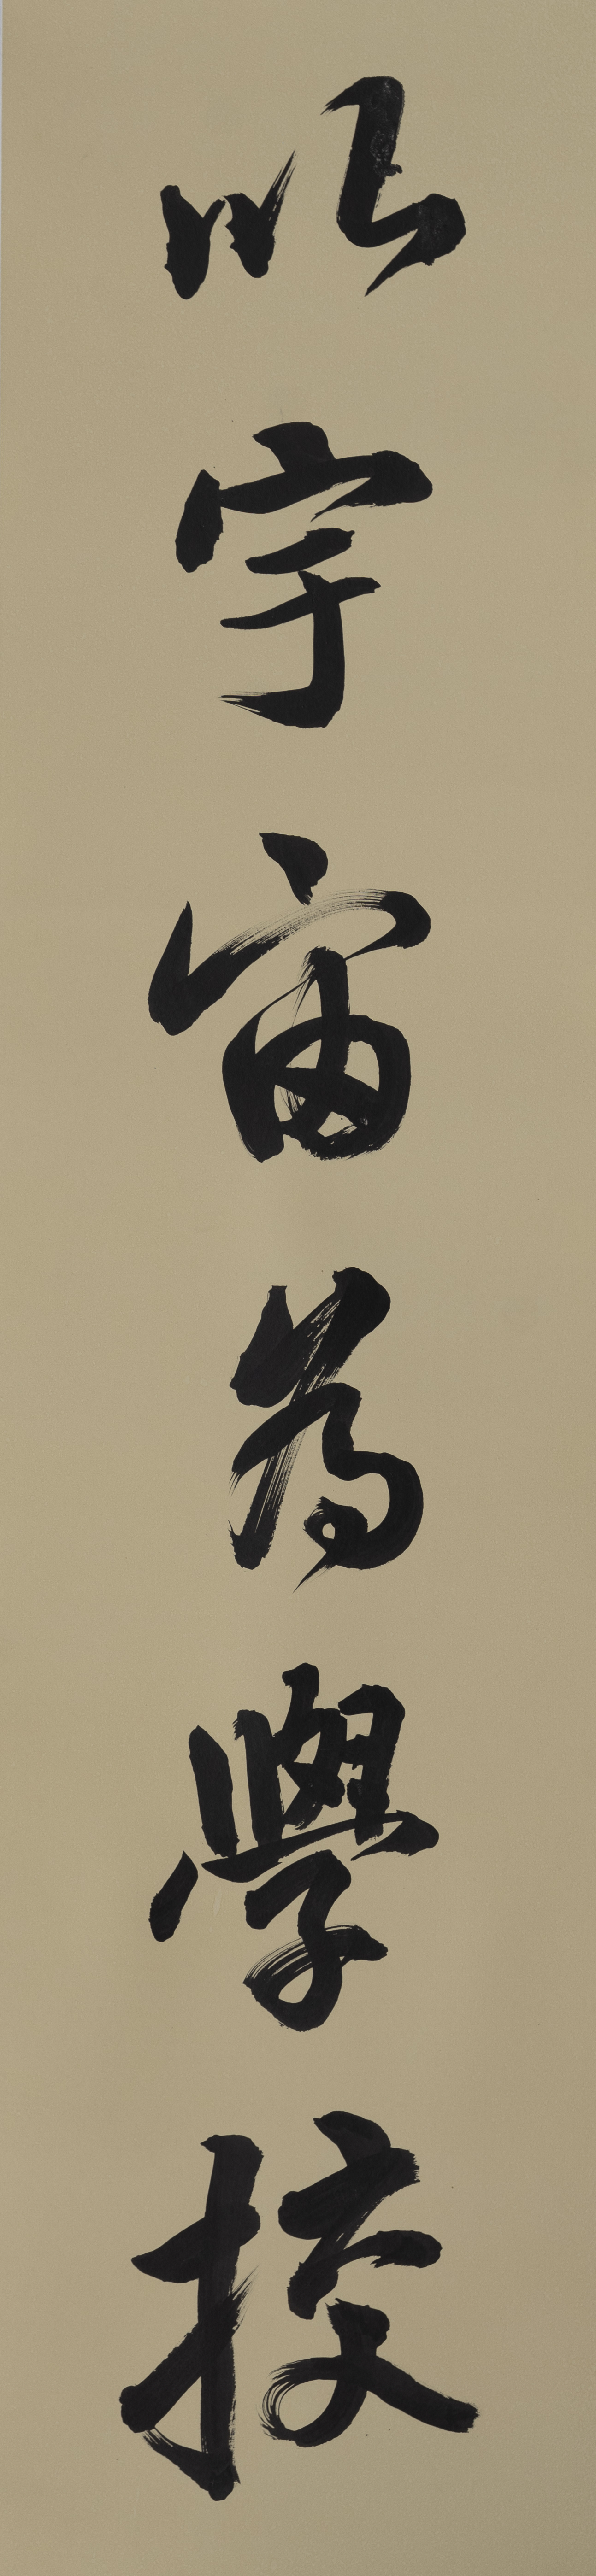 以宇宙為學校